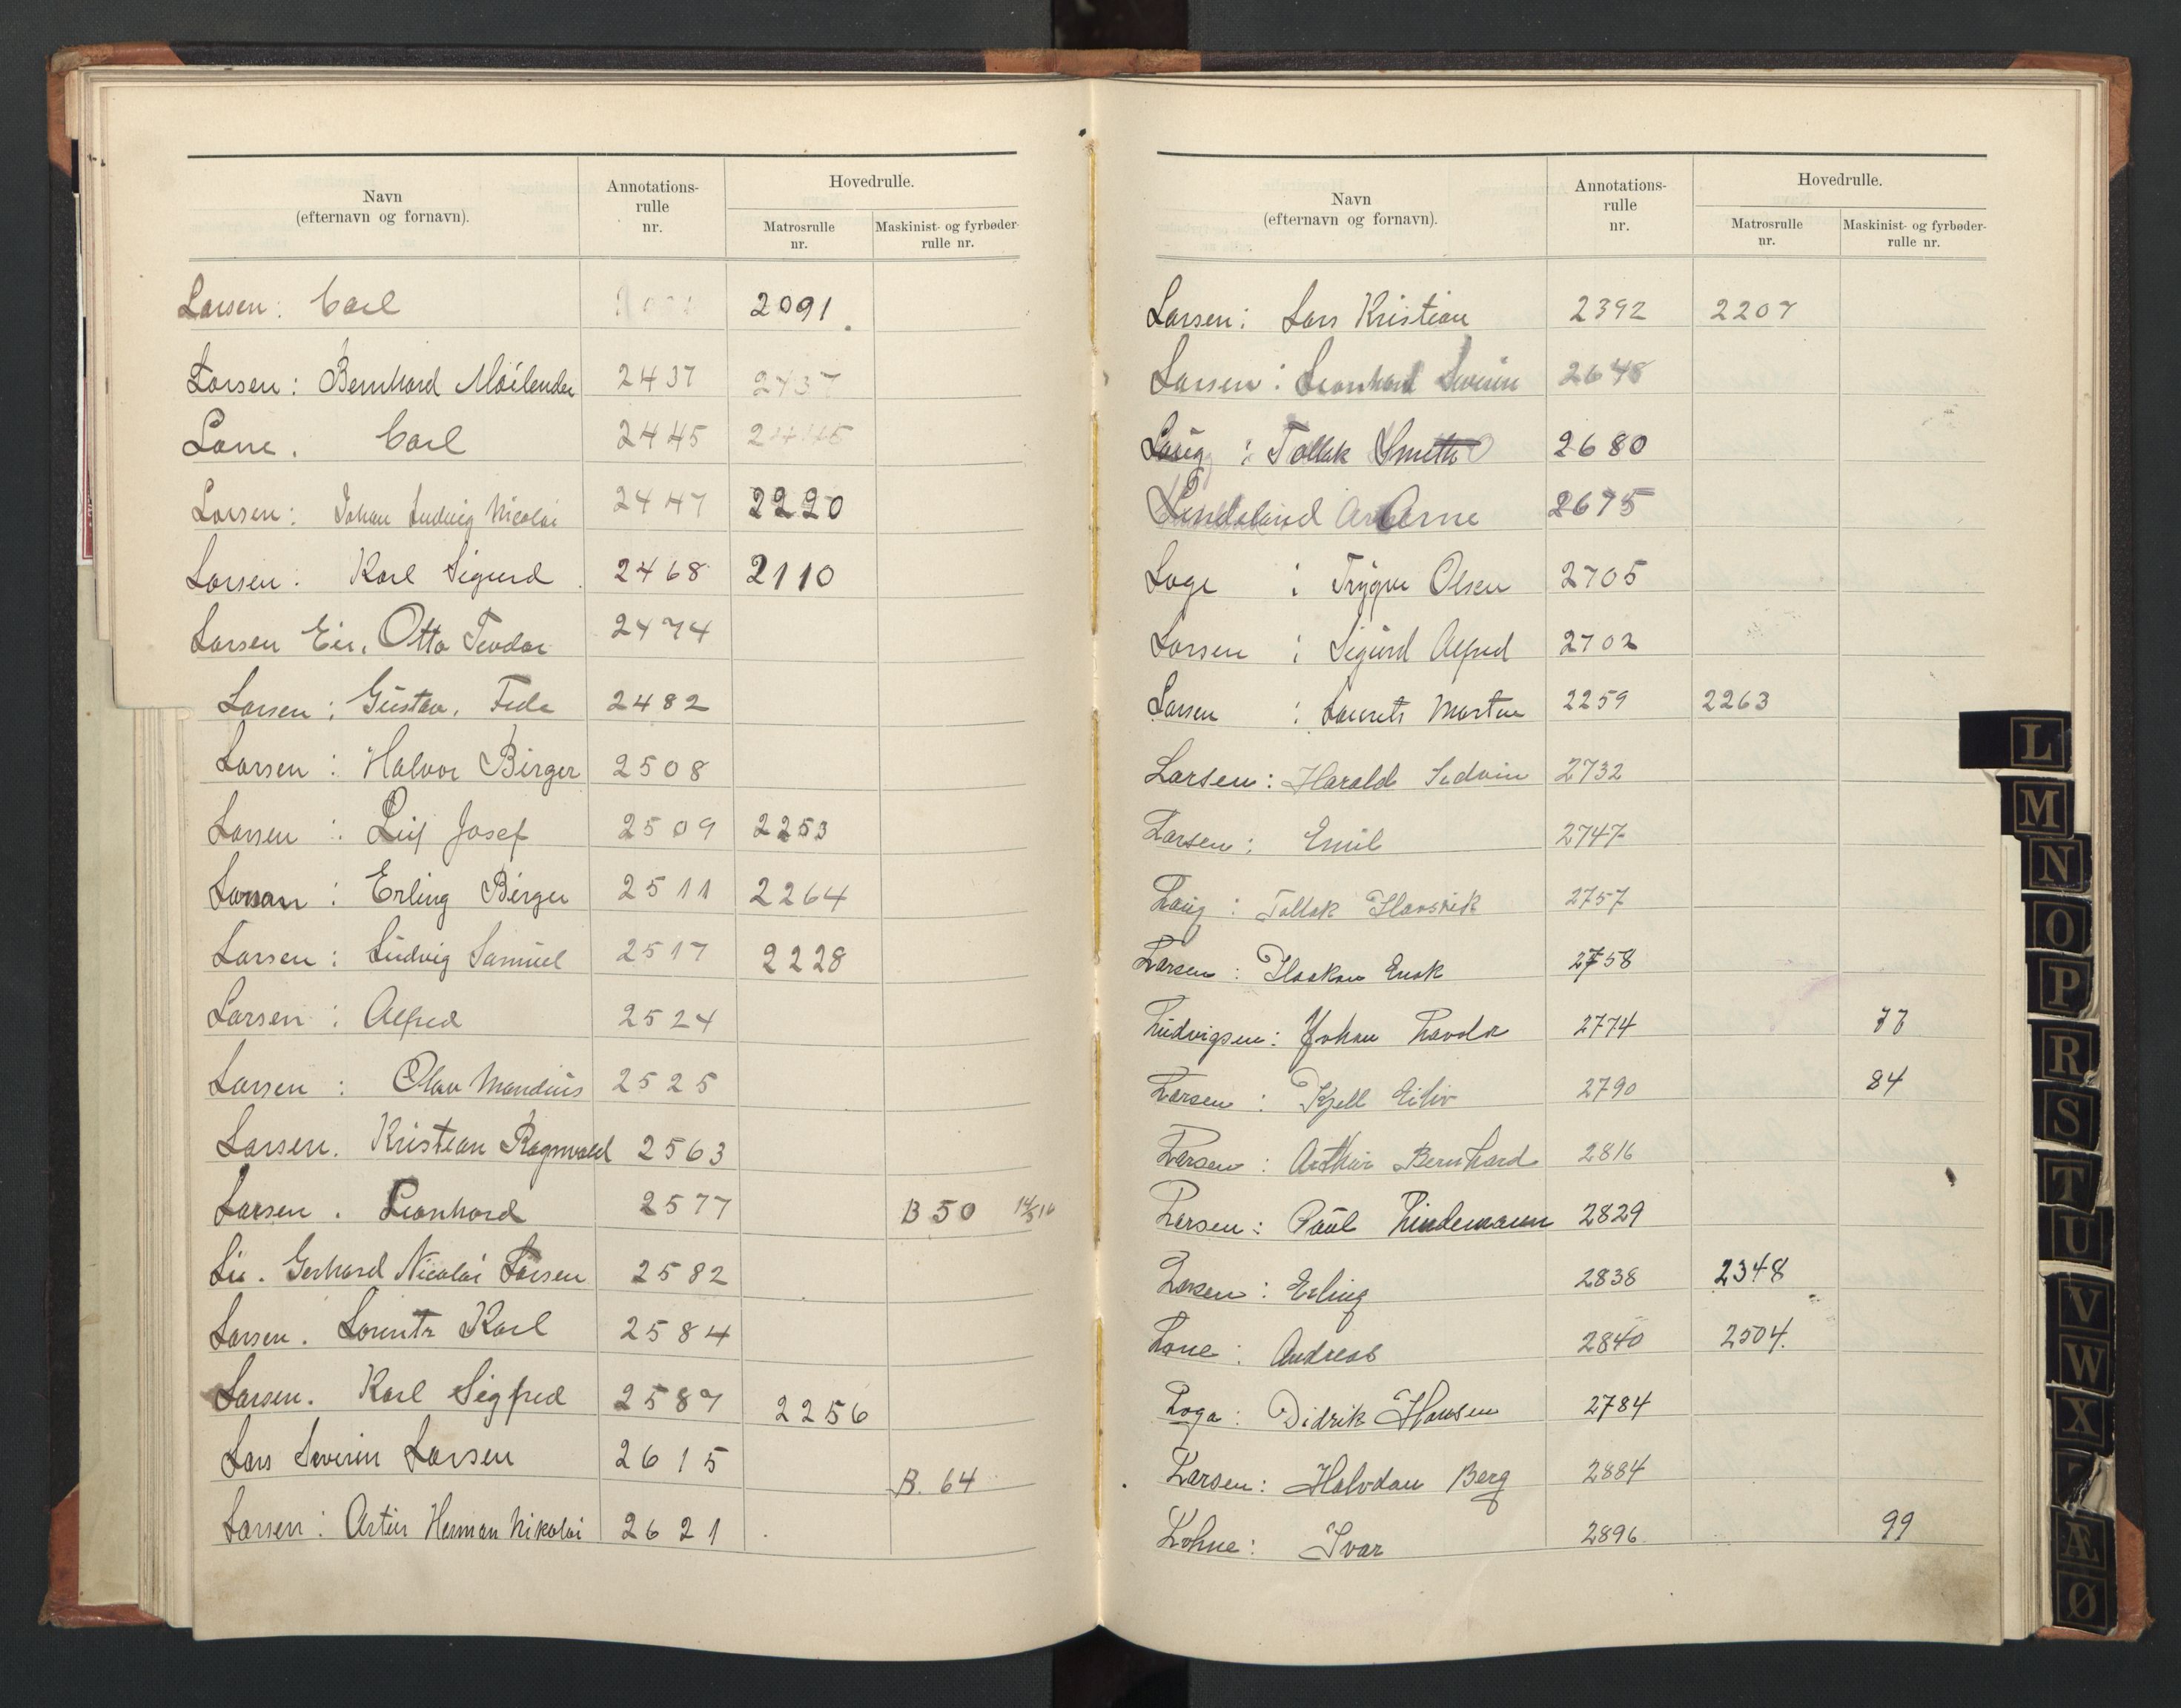 Navn (efternavn og fornavn). Annotations-rulle nr. Hovedrulle. Matrosrulle nr. Maskinist- og fyrbøder-rulle nr.
Larsen: Carl 2091.
Larsen: Bernhard Møilender 2437 2437
Lone. Carl 2445 2445
Larsen: Johan Ludvig Nicolai 2447 2220
Larsen: Karl Sigurd 2468 2110
Larsen Otto Teodor 2474
Larsen: Gustav. 2482
Larsen: Halvor Birger 2508
Larsen: Leif Josef 2509 2253
Larsen: Erling Birger 2511 2264
Larsen: Ludvig Samuel 2517 2228
Larsen: Alfred 2524
Larsen: Olav Mandius 2525
Larsen. Kristian Ragnvald 2563
Larsen. Leonhard 2577 B 50
Lie. Gerhard Nicolai Larsen 2582
Larsen. Lorentz Karl 2584
Larsen. Karl Sigfred 2587 2256
Lars Severin Larsen 2615 B. 64
Larsen: Artur Herman Nikolai 2621
Navn (efternavn og fornavn). Annotations-rulle nr. Hovedrulle. Matrosrulle nr. Maskinist- og fyrbøder-rulle nr.
Larsen: Lars Kristian 2392 2207
Larsen: Leonhard Severin 2648
Laug: Tollak Smith 2680
Lindeland Arne 2675
Loge: Trygve Olsen 2705
Larsen: Sigurd Alfred 2702
Larsen: Laurits Martin 2259 2263
Larsen: Harald Sedvin 2732
Larsen: Emil 2747
Laug: Tollak 2757
Larsen: Haakon Enok 2758
Ludvigsen: Johan 2774 77
Larsen: Kjell Eiliv 2790 84
Larsen: Arthur Bernhard 2816
Larsen: Paul Lindemann 2829
Larsen: Erling 2838 2348
Lone: Andreas 2840 2504.
Loga: Didrik Hansen 2784
Larsen: Halvdan Berg 2884
Lohne: Ivar 2896 99
L
M
N
O
P
R
S
T
U
V
W
X
Æ
Ø